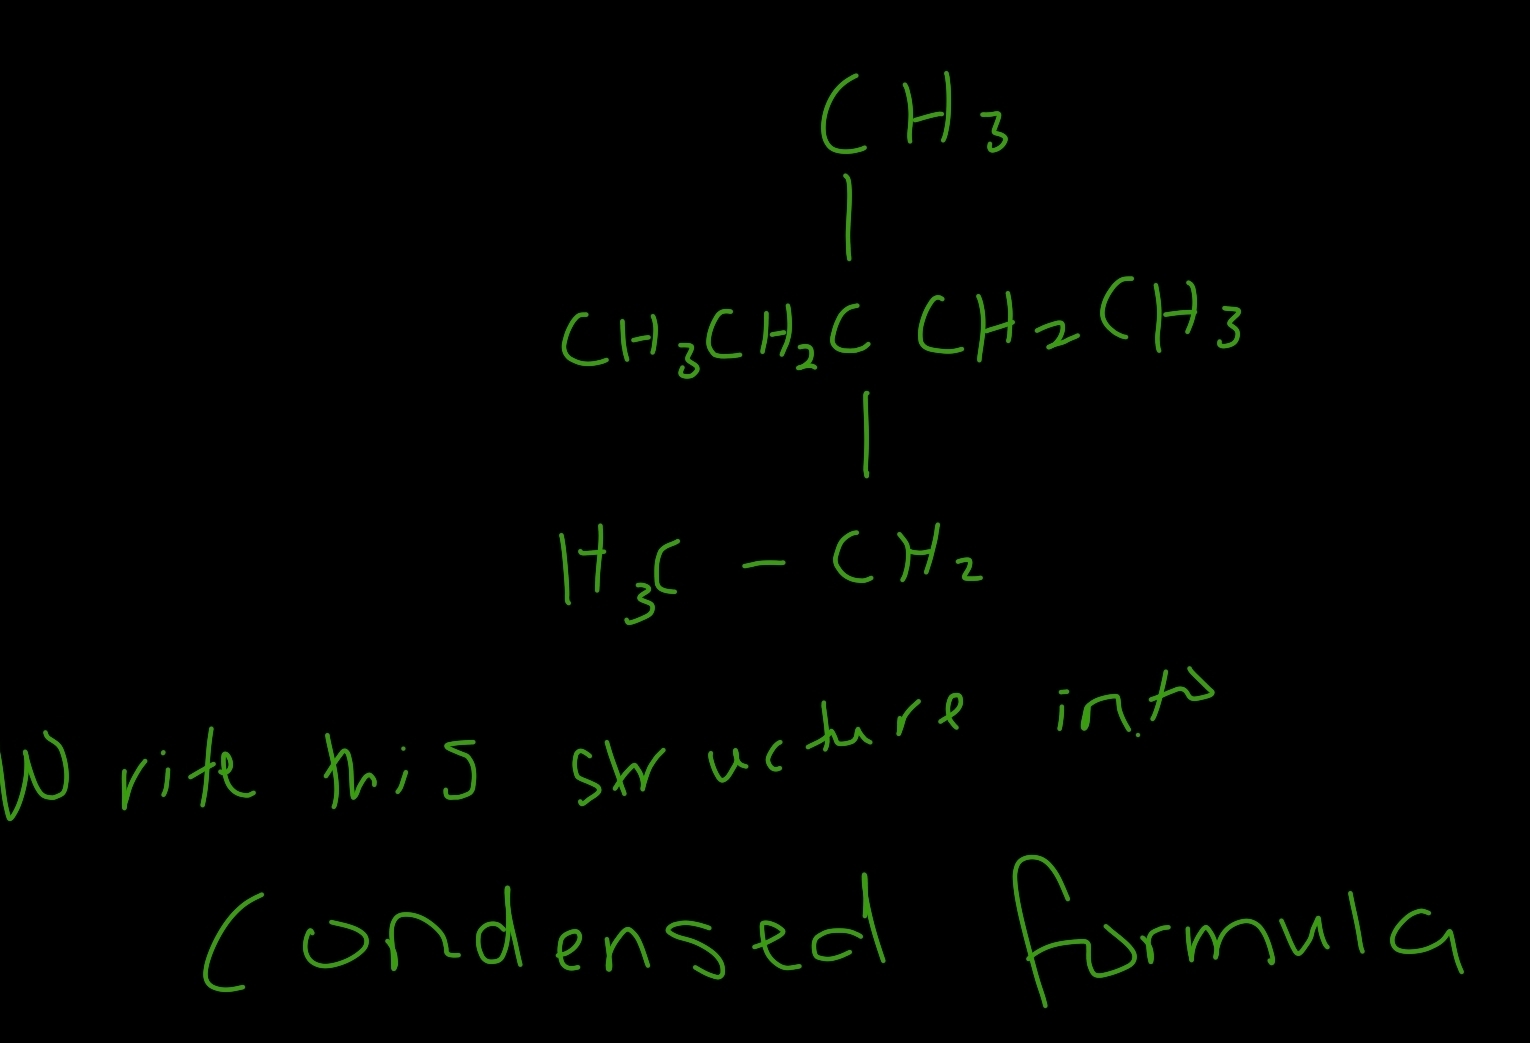 CH3
CH3CH2C CH2CH3
H3C - CH2
Write this structure into
Condensed formula